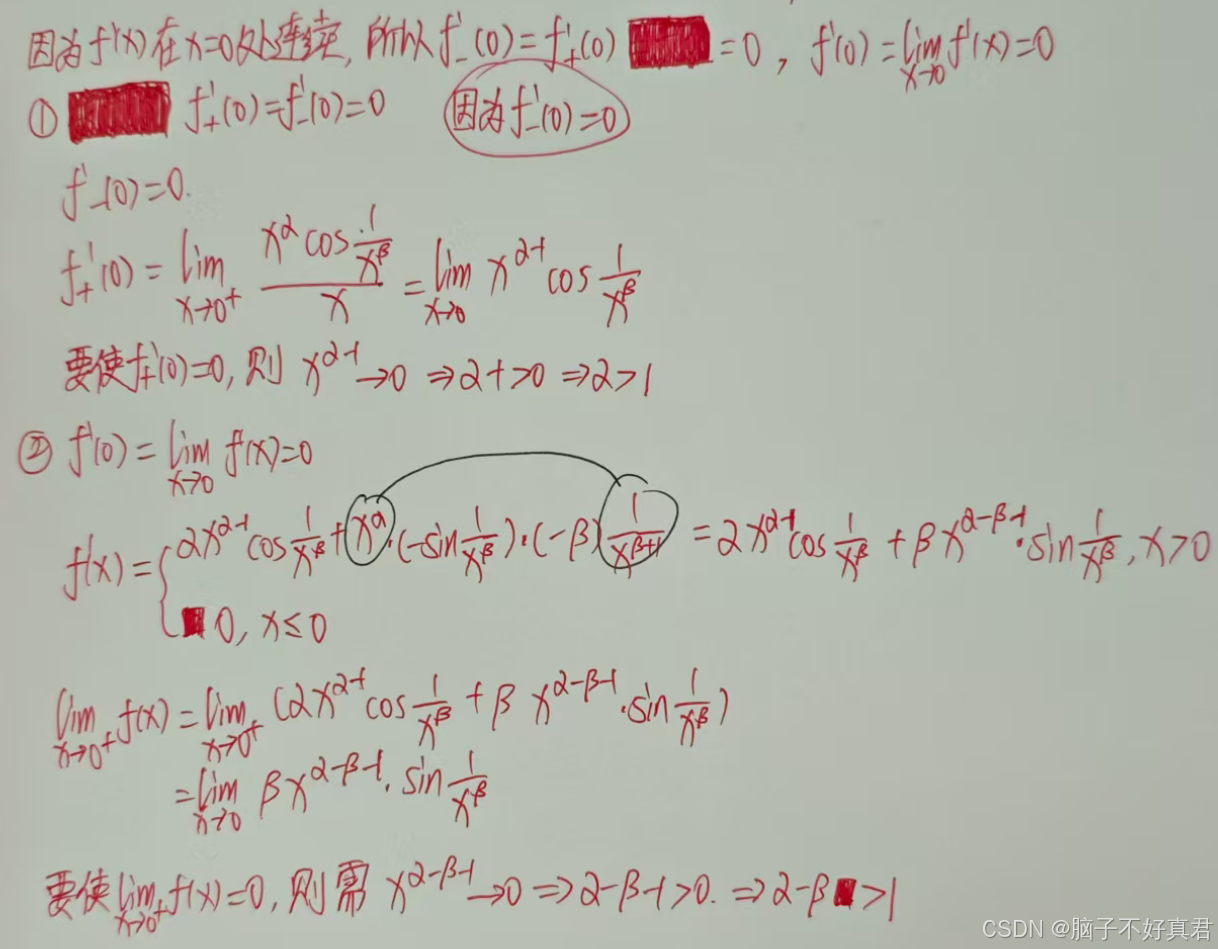 因为f'(x)在x=0处连续, 所以f'₋(0)=f'₊(0) =0, f'(0)=lim_{x→0} f'(x)=0
① f'₊(0)=f'₋(0)=0 因为f'₋(0)=0
f'₋(0)=0.
f'₊(0)=lim_{x→0⁺} \frac{x^α cos\frac{1}{x^β}}{x}=lim_{x→0} x^{α-1} cos\frac{1}{x^β}
要使f'₊(0)=0, 则 x^{α-1}→0 ⇒α-1>0 ⇒α>1
② f'(0)=lim_{x→0} f'(x)=0
f'(x)={αx^{α-1}cos\frac{1}{x^β}+x^α·(-sin\frac{1}{x^β})·(-β)\frac{1}{x^{β+1}}=αx^{α-1}cos\frac{1}{x^β}+βx^{α-β-1}·sin\frac{1}{x^β}, x>0
0, x≤0
lim_{x→0⁺} f'(x)=lim_{x→0⁺} (αx^{α-1}cos\frac{1}{x^β}+β x^{α-β-1}·sin\frac{1}{x^β})
=lim_{x→0} βx^{α-β-1}·sin\frac{1}{x^β}
要使lim_{x→0⁺} f'(x)=0, 则需 x^{α-β-1}→0 ⇒α-β-1>0. ⇒α-β>1
CSDN @脑子不好真君